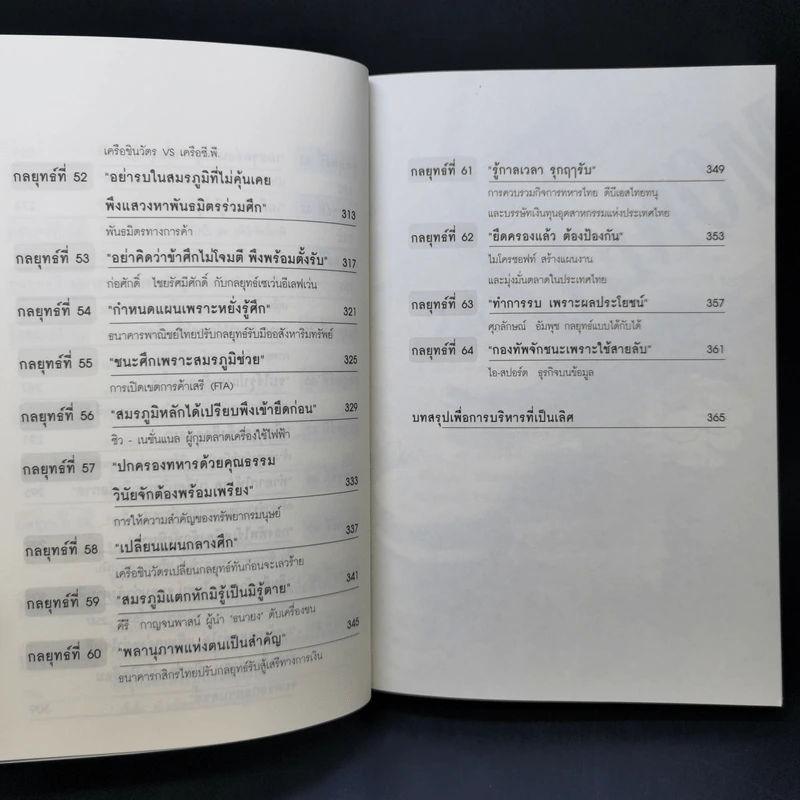 เครือชินวัตร VS เครือซี.พี.
กลยุทธ์ที่ 52 "อย่ารบในสมรภูมิที่ไม่คุ้นเคย
พึงแสวงหาพันธมิตรร่วมศึก" 313
พันธมิตรทางการค้า
กลยุทธ์ที่ 53 "อย่าคิดว่าข้าศึกไม่โจมตี พึงพร้อมตั้งรับ" 317
ก่อศักดิ์ ไชยรัศมีศักดิ์ กับกลยุทธ์เซเว่นอีเลฟเว่น
กลยุทธ์ที่ 54 "กำหนดแผนเพราะหยั่งรู้ศึก" 321
ธนาคารพาณิชย์ไทยปรับกลยุทธ์รับมืออสังหาริมทรัพย์
กลยุทธ์ที่ 55 "ชนะศึกเพราะสมรภูมิช่วย" 325
การเปิดเขตการค้าเสรี (FTA)
กลยุทธ์ที่ 56 "สมรภูมิหลักได้เปรียบพึงเข้ายึดก่อน" 329
ซิว - เนชั่นแนล ผู้กุมตลาดเครื่องใช้ไฟฟ้า
กลยุทธ์ที่ 57 "ปกครองทหารด้วยคุณธรรม
วินัยจักต้องพร้อมเพรียง" 333
การให้ความสำคัญของทรัพยากรมนุษย์
กลยุทธ์ที่ 58 "เปลี่ยนแผนกลางศึก" 337
เครือชินวัตรเปลี่ยนกลยุทธ์ทันก่อนจะเลวร้าย
กลยุทธ์ที่ 59 "สมรภูมิแตกหักมิรู้เป็นมิรู้ตาย" 341
คีรี กาญจนพาสน์ ผู้นำ "ธนายง" ดับเครื่องชน
กลยุทธ์ที่ 60 "พลานุภาพแห่งตนเป็นสำคัญ" 345
ธนาคารกสิกรไทยปรับกลยุทธ์รับสู้เสรีทางการเงิน
กลยุทธ์ที่ 61 "รู้กาลเวลา รุกฤๅรับ" 349
การควบรวมกิจการทหารไทย ดีบีเอสไทยทนุ
และบรรษัทเงินทุนอุตสาหกรรมแห่งประเทศไทย
กลยุทธ์ที่ 62 "ยึดครองแล้ว ต้องป้องกัน" 353
ไมโครซอฟท์ สร้างแผนงาน
และมุ่งมั่นตลาดในประเทศไทย
กลยุทธ์ที่ 63 "ทำการรบ เพราะผลประโยชน์" 357
ศุภลักษณ์ อัมพุช กลยุทธ์แบบได้กับได้
กลยุทธ์ที่ 64 "กองทัพจักชนะเพราะใช้สายลับ" 361
ไอ-สปอร์ต ธุรกิจบนข้อมูล
บทสรุปเพื่อการบริหารที่เป็นเลิศ 365